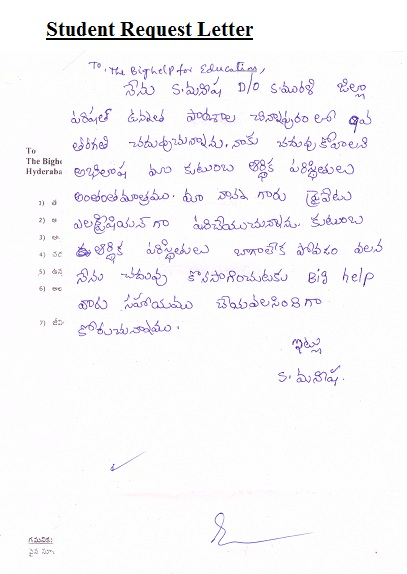 Student Request Letter
To, The Bighelp for Education,
నేను S.మనీష D/O S.మురళి జిల్లా
పరిషత్ ఉన్నత పాఠశాల చిన్నాపురం లో 9వ
తరగతి చదువుచున్నాను. నాకు చదువుకోవాలని
అభిలాష మా కుటుంబ ఆర్థిక పరిస్థితులు
అంతంతమాత్రము. మా నాన్న గారు ప్రైవేటు
ఎలక్ట్రీషియన్ గా పనిచేయుచున్నారు. కుటుంబ
ఆర్థిక పరిస్థితులు బాగాలేక పోవడం వలన
నేను చదువు కొనసాగించుటకు Big help
వారు సహాయము చేయవలసిందిగా
కోరుచున్నాము.
ఇట్లు
S. మనీష.
To
The Bighe
Hyderaba
1)
2)
3)
4)
5)
6)
7)
గమనిక:
పైన సూ.